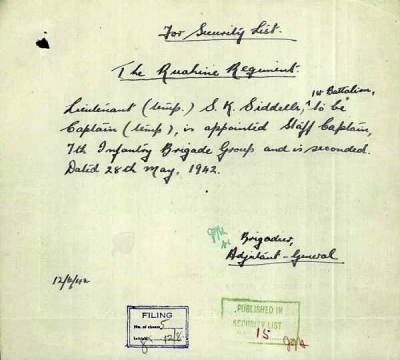 For Security List.
The Ruahine Regiment.
1st Battalion,
Lieutenant (temp.) S. K. Siddells, ^ to be
Captain (temp), is appointed Staff Captain,
7th Infantry Brigade Group and is seconded.
Dated 28th May, 1942.
Brigadier,
Adjutant-General
12/6/42
FILING
No. of shees 5
12/8
PUBLISHED IN
SECURITY LIST
15